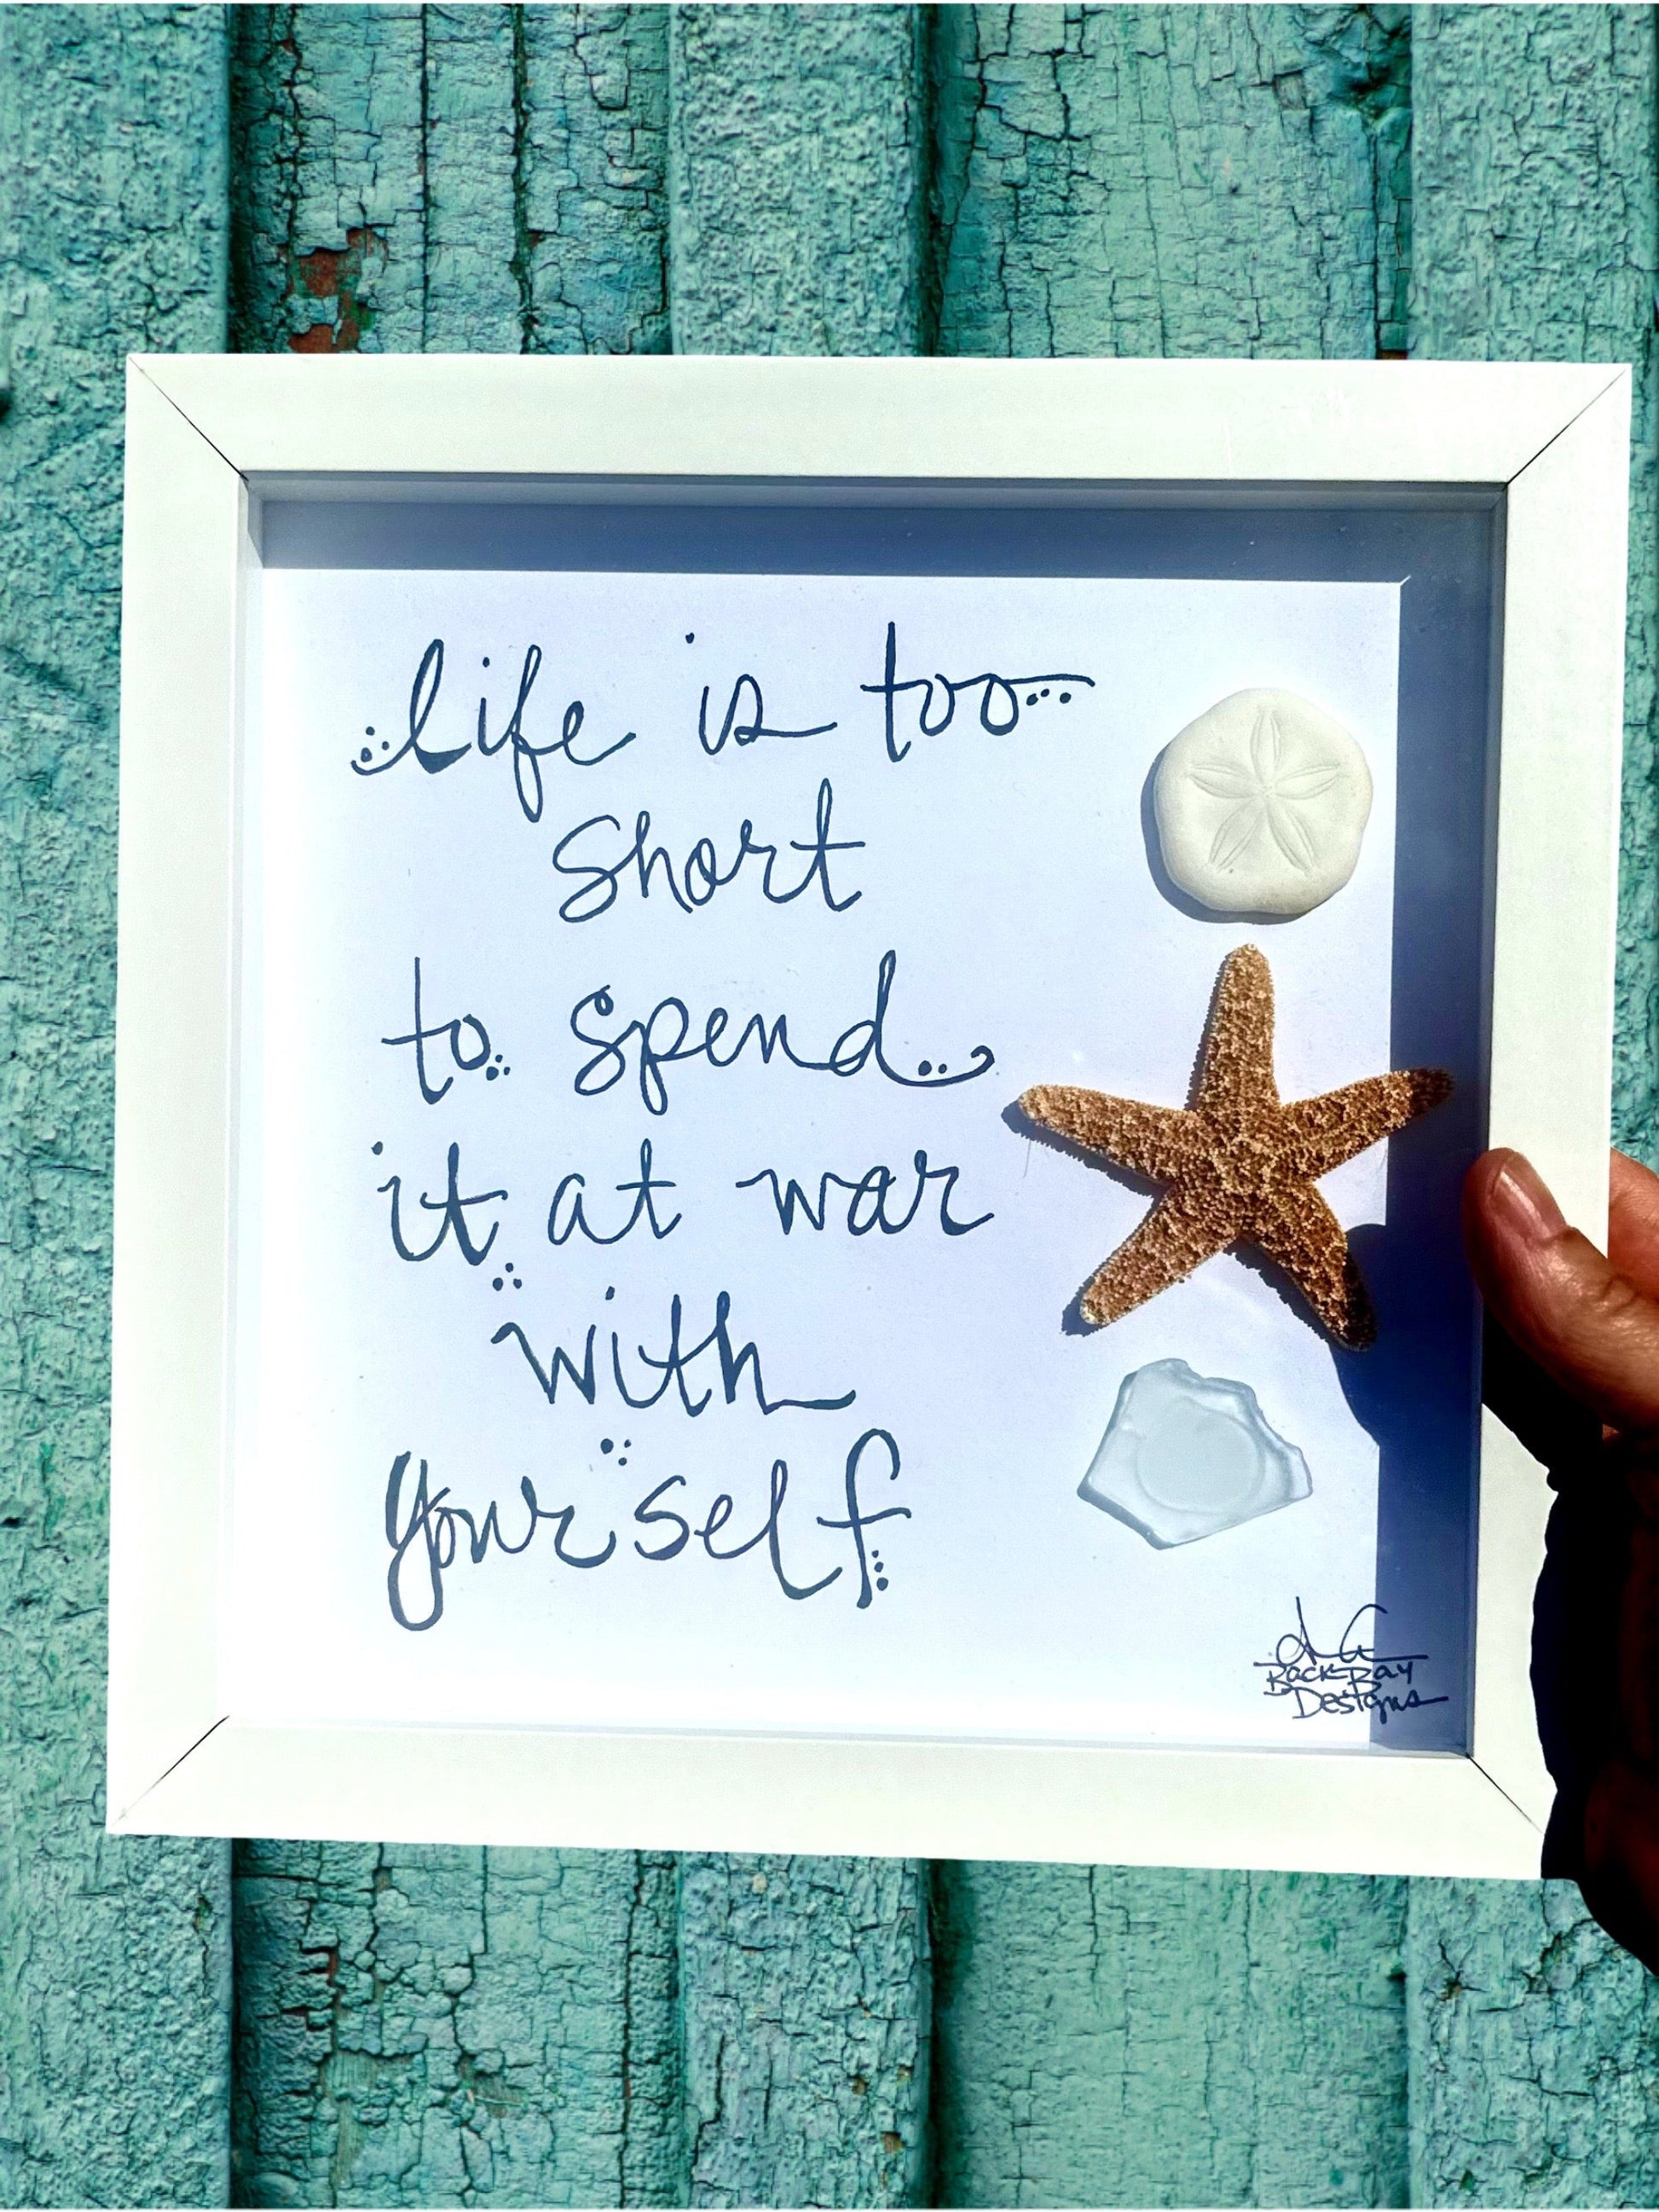 life is too
short
to spend
it at war
with
yourself
BackBay
Designs